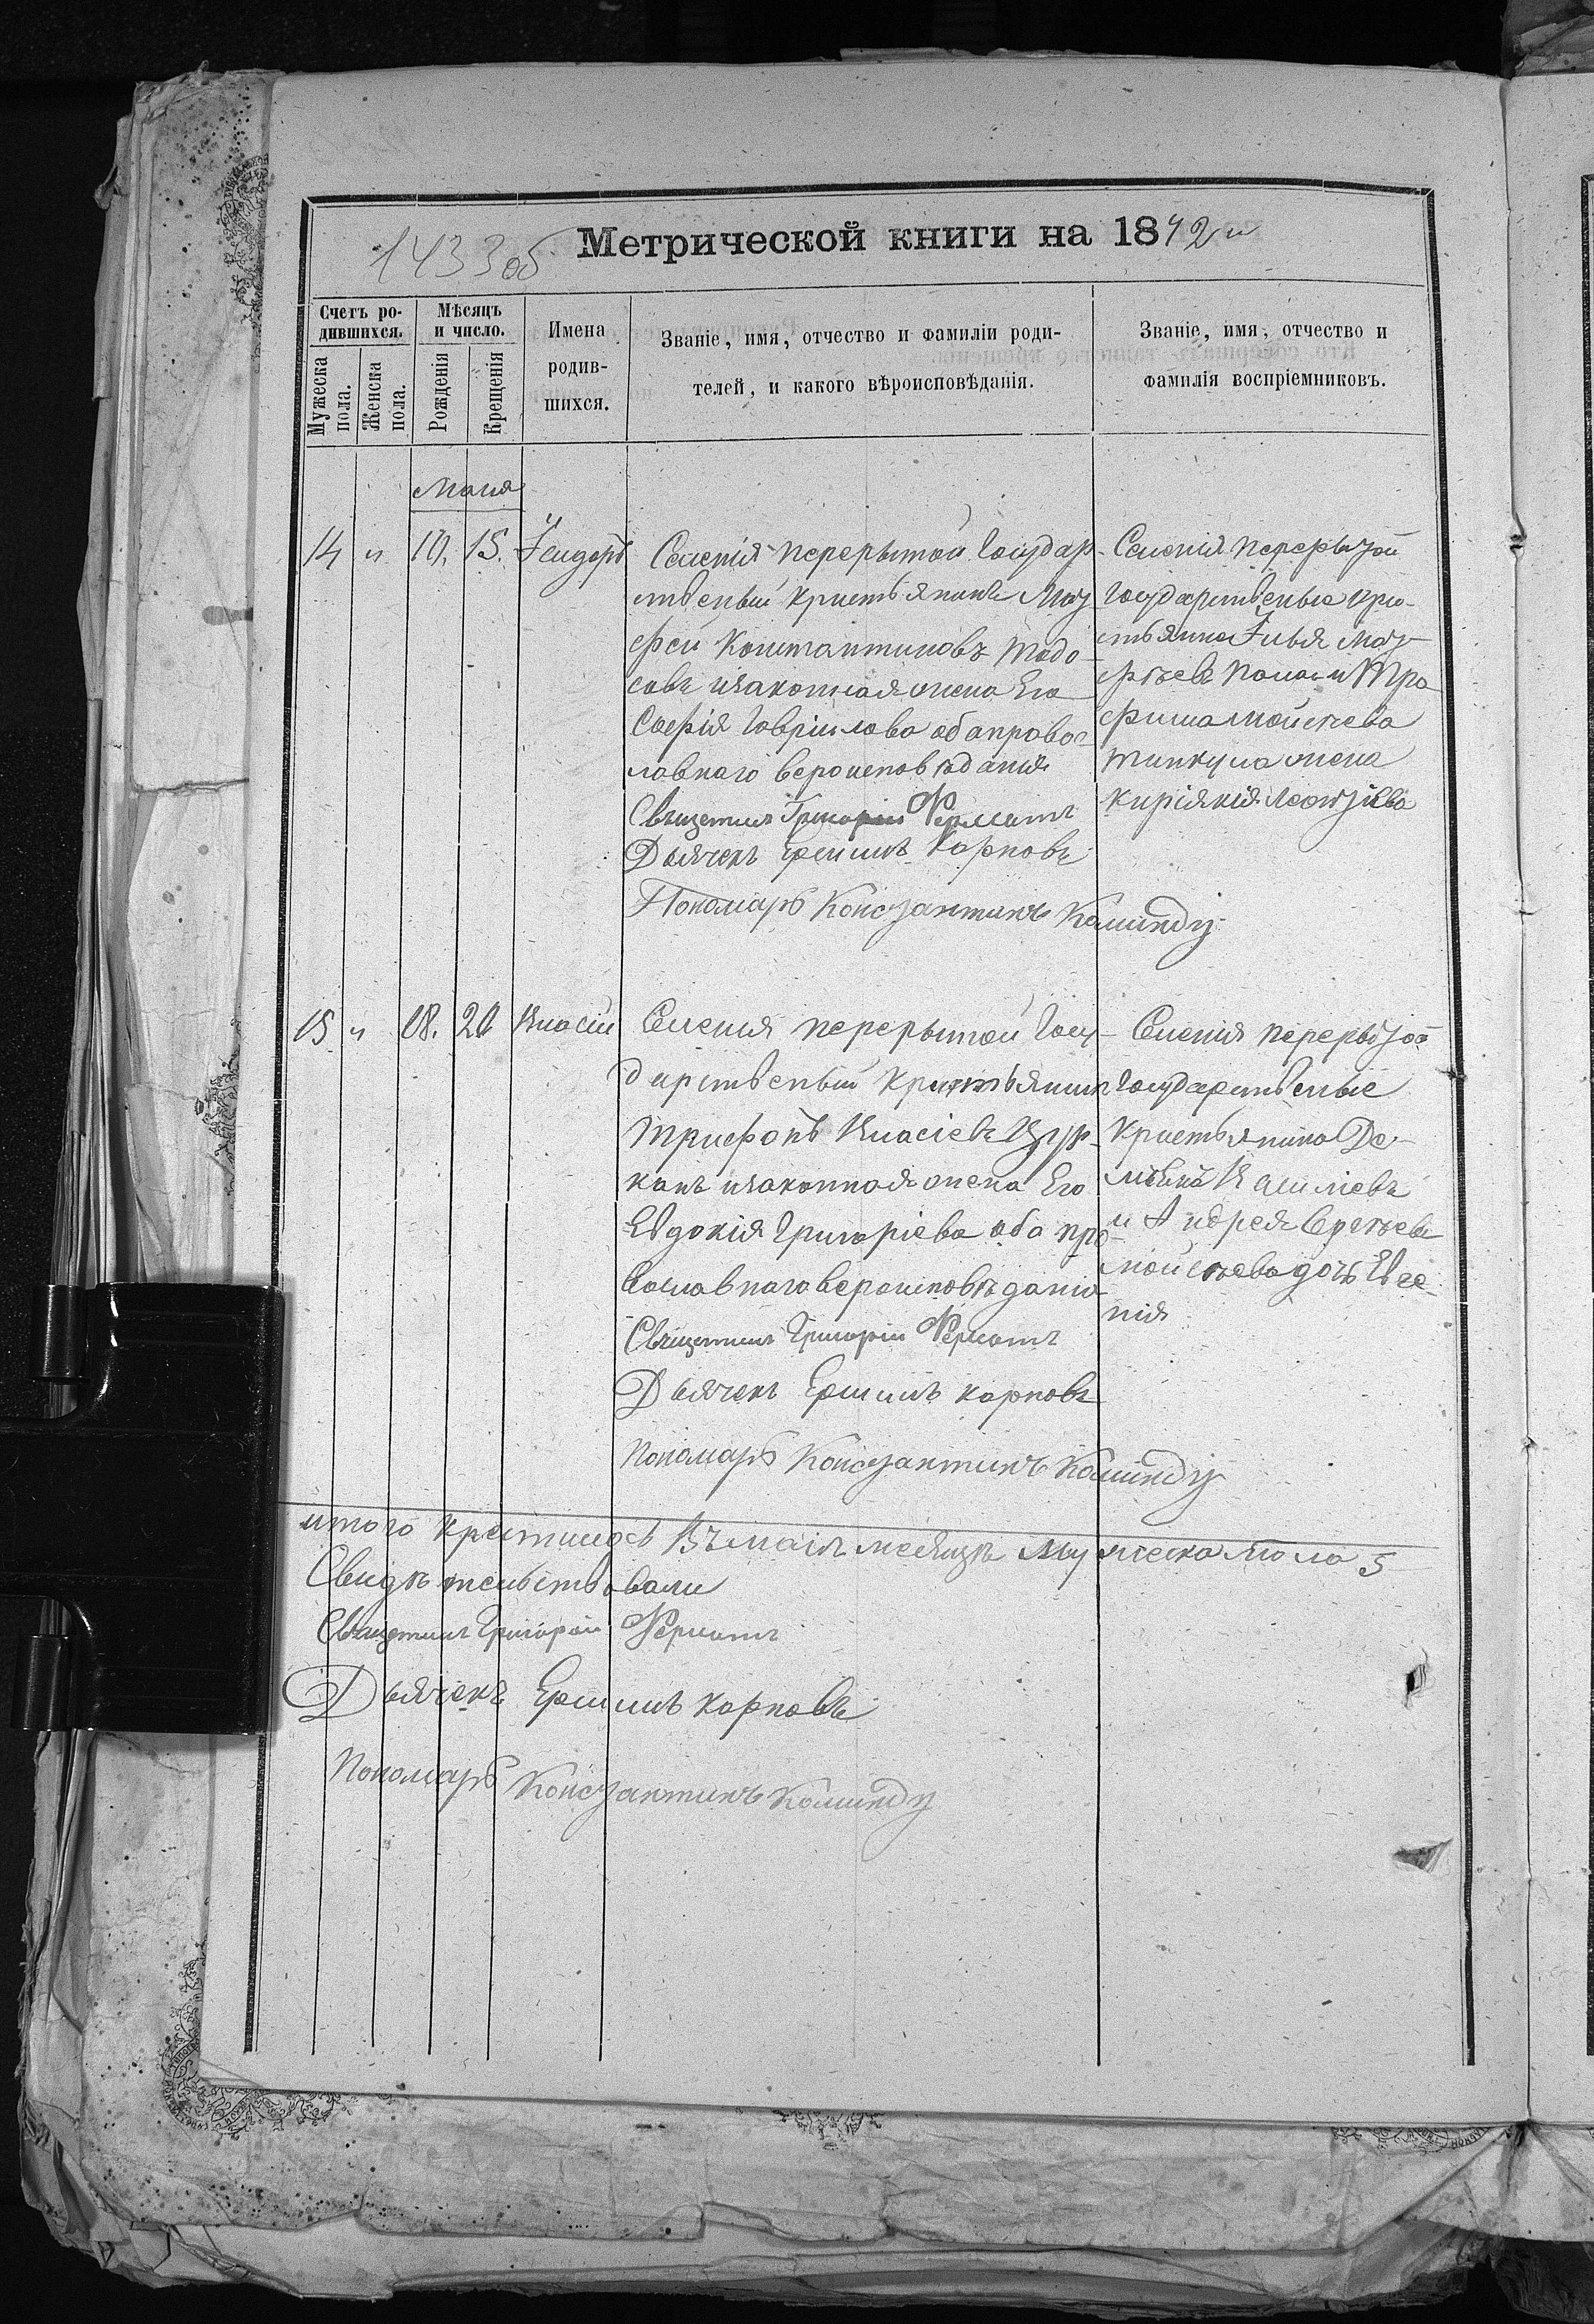 1433 об
Метрической книги на 1842й
Счетъ ро-
дившихся.
Мужеска
пола.
Женска
пола.
Мѣсяцъ
и число.
Рожденія
Крещенія
Имена
родив-
шихся.
Званіе, имя, отчество и фамиліи роди-
телей, и какого вѣроисповѣданія.
Званіе, имя, отчество и
фамилія воспріемниковъ.
Маия
14 " 10. 15.
Селенія перерытой Государ-
ственый кристьянинъ Мат
фей Константиновъ Тодо-
совъ изаконная жена Его
Софія Гаврилова оба правос-
лавнаго вероисповѣданія
Священникъ Григорій
Дьячекъ Ефимъ Карповъ
Пономарь Константинъ
Селенія перерытой
Государственые кри-
стьяние Илья Мат-
фѣевъ и Тра
фима Мойсеева
жена
Кирiякiя
15 " 18. 20 Власій
Селения перерытой Госу-
дарственый кристьянин
Трифонъ Власіевъ Цур-
канъ изаконная жена Его
Евдокія Григоріева оба пра-
вославнаго вероисповѣдания
Священникъ Григорій
Дьячекъ Ефимъ карповъ
Пономарь Константинъ
Селенія перерытой
Государственые
Кристьянина Де-
и Андрея
Мойсеева дочь Евге-
нія
итого крестилось Въ маіѣ месяцѣ мужеска пола 5
Свидѣтельствовали
Священникъ Григорій
Дьячекъ Ефимъ карповъ
Пономарь Константинъ